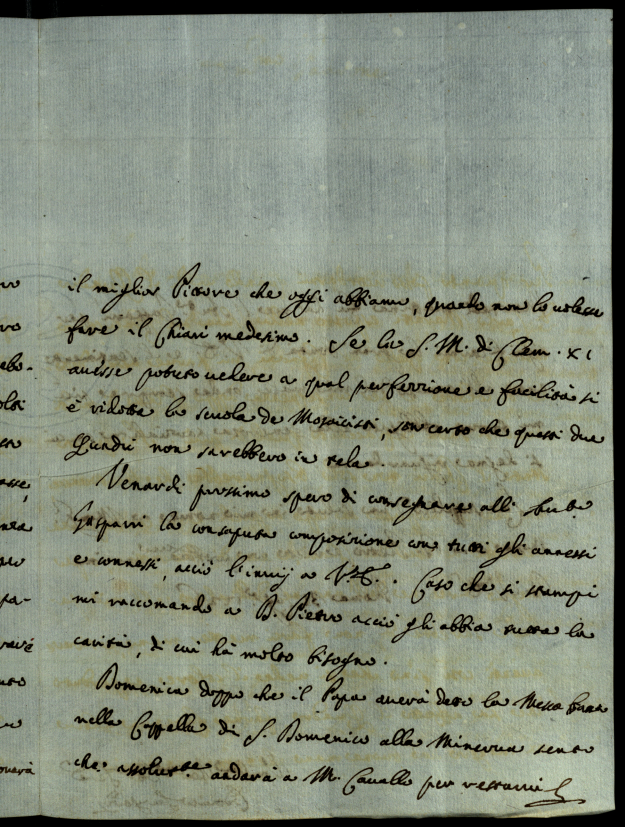 il miglior Pittore che oggi abbiamo, quando non lo volesse
fare il Chiari medesimo. Se la S. M. di Clem. XI
avesse potuto vedere a qual perfezzione e facilità si
è ridotta la scuola de Mosaicisti, son certo che questi due
Quadri non sarebbero in tela.
Venardì prossimo spero di consegnare alli
Gasparri la consaputa composizione con tutti gli annessi
e connessi, acciò l'invij a . Caso che si stampi
mi raccomando a D. Pietro acciò gli abbia tutta la
carità, di cui hà molto bisogno.
Domenica doppo che il Papa averà detto la Messa bassa
nella Cappella di S. Domenico alla Minerva sento
che assolutte andarà a M. Cavallo per restarvi